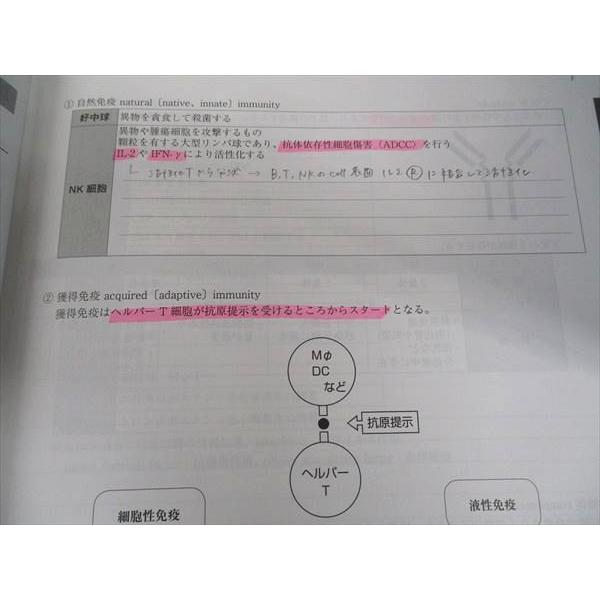 ① 自然免疫 natural〔native、innate〕immunity
好中球 異物を貪食して殺菌する
異物や腫瘍細胞を攻撃するもの
顆粒を有する大型リンパ球であり、抗体依存性細胞傷害（ADCC）を行う
IL-2 や IFN-γ により活性化する
NK 細胞
活性化Tから分泌 → B, T, NKのcell表面 IL2 Ⓡ に結合して活性化
② 獲得免疫 acquired〔adaptive〕immunity
獲得免疫はヘルパー T 細胞が抗原提示を受けるところからスタートとなる。
Mφ
DC
など
抗原提示
ヘルパー
T
細胞性免疫
液性免疫